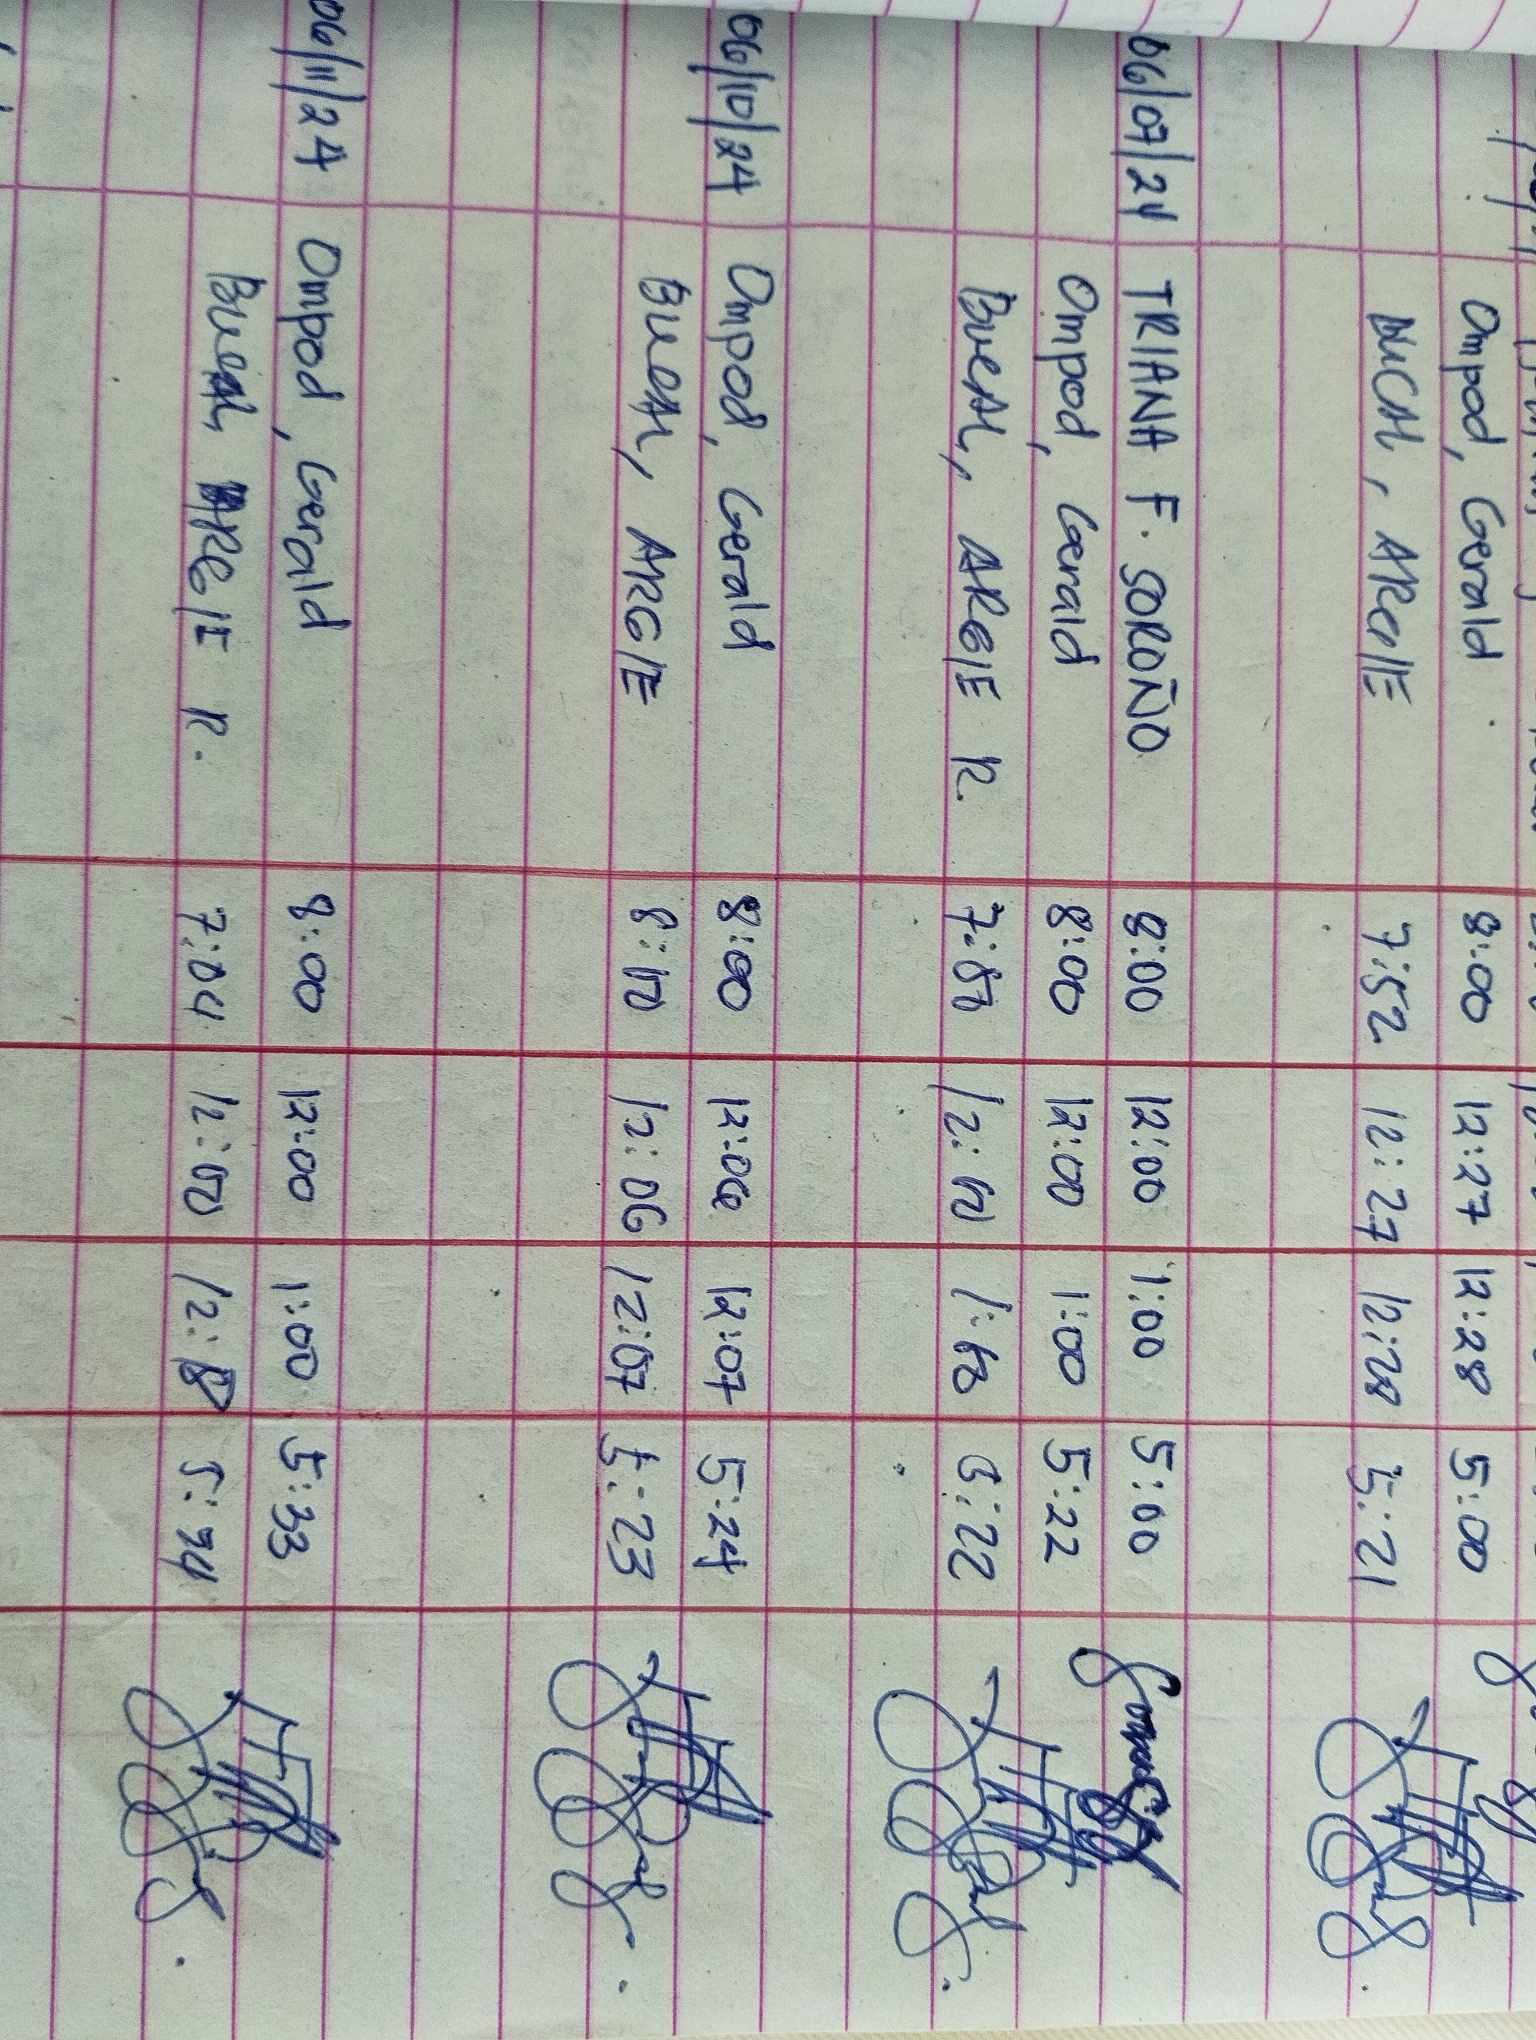 Ompod, Gerald 8:00 12:27 12:28 5:00
ARGIE 7:52 12:27 12:28 5:21
06/07/24 TRIANA F. SOROÑO 8:00 12:00 1:00 5:00
Ompod, Gerald 8:00 12:00 1:00 5:22
Bueal, ARGIE R. 12:00 1:00 :22
06/10/24 Ompod, Gerald 8:00 12:06 12:07 5:24
Bueal, ARGIE 8:00 12:06 12:07 5:23
06/11/24 Ompod, Gerald 8:00 12:00 1:00 5:33
Bueal, ARGIE R. 7:04 12:00 5:34